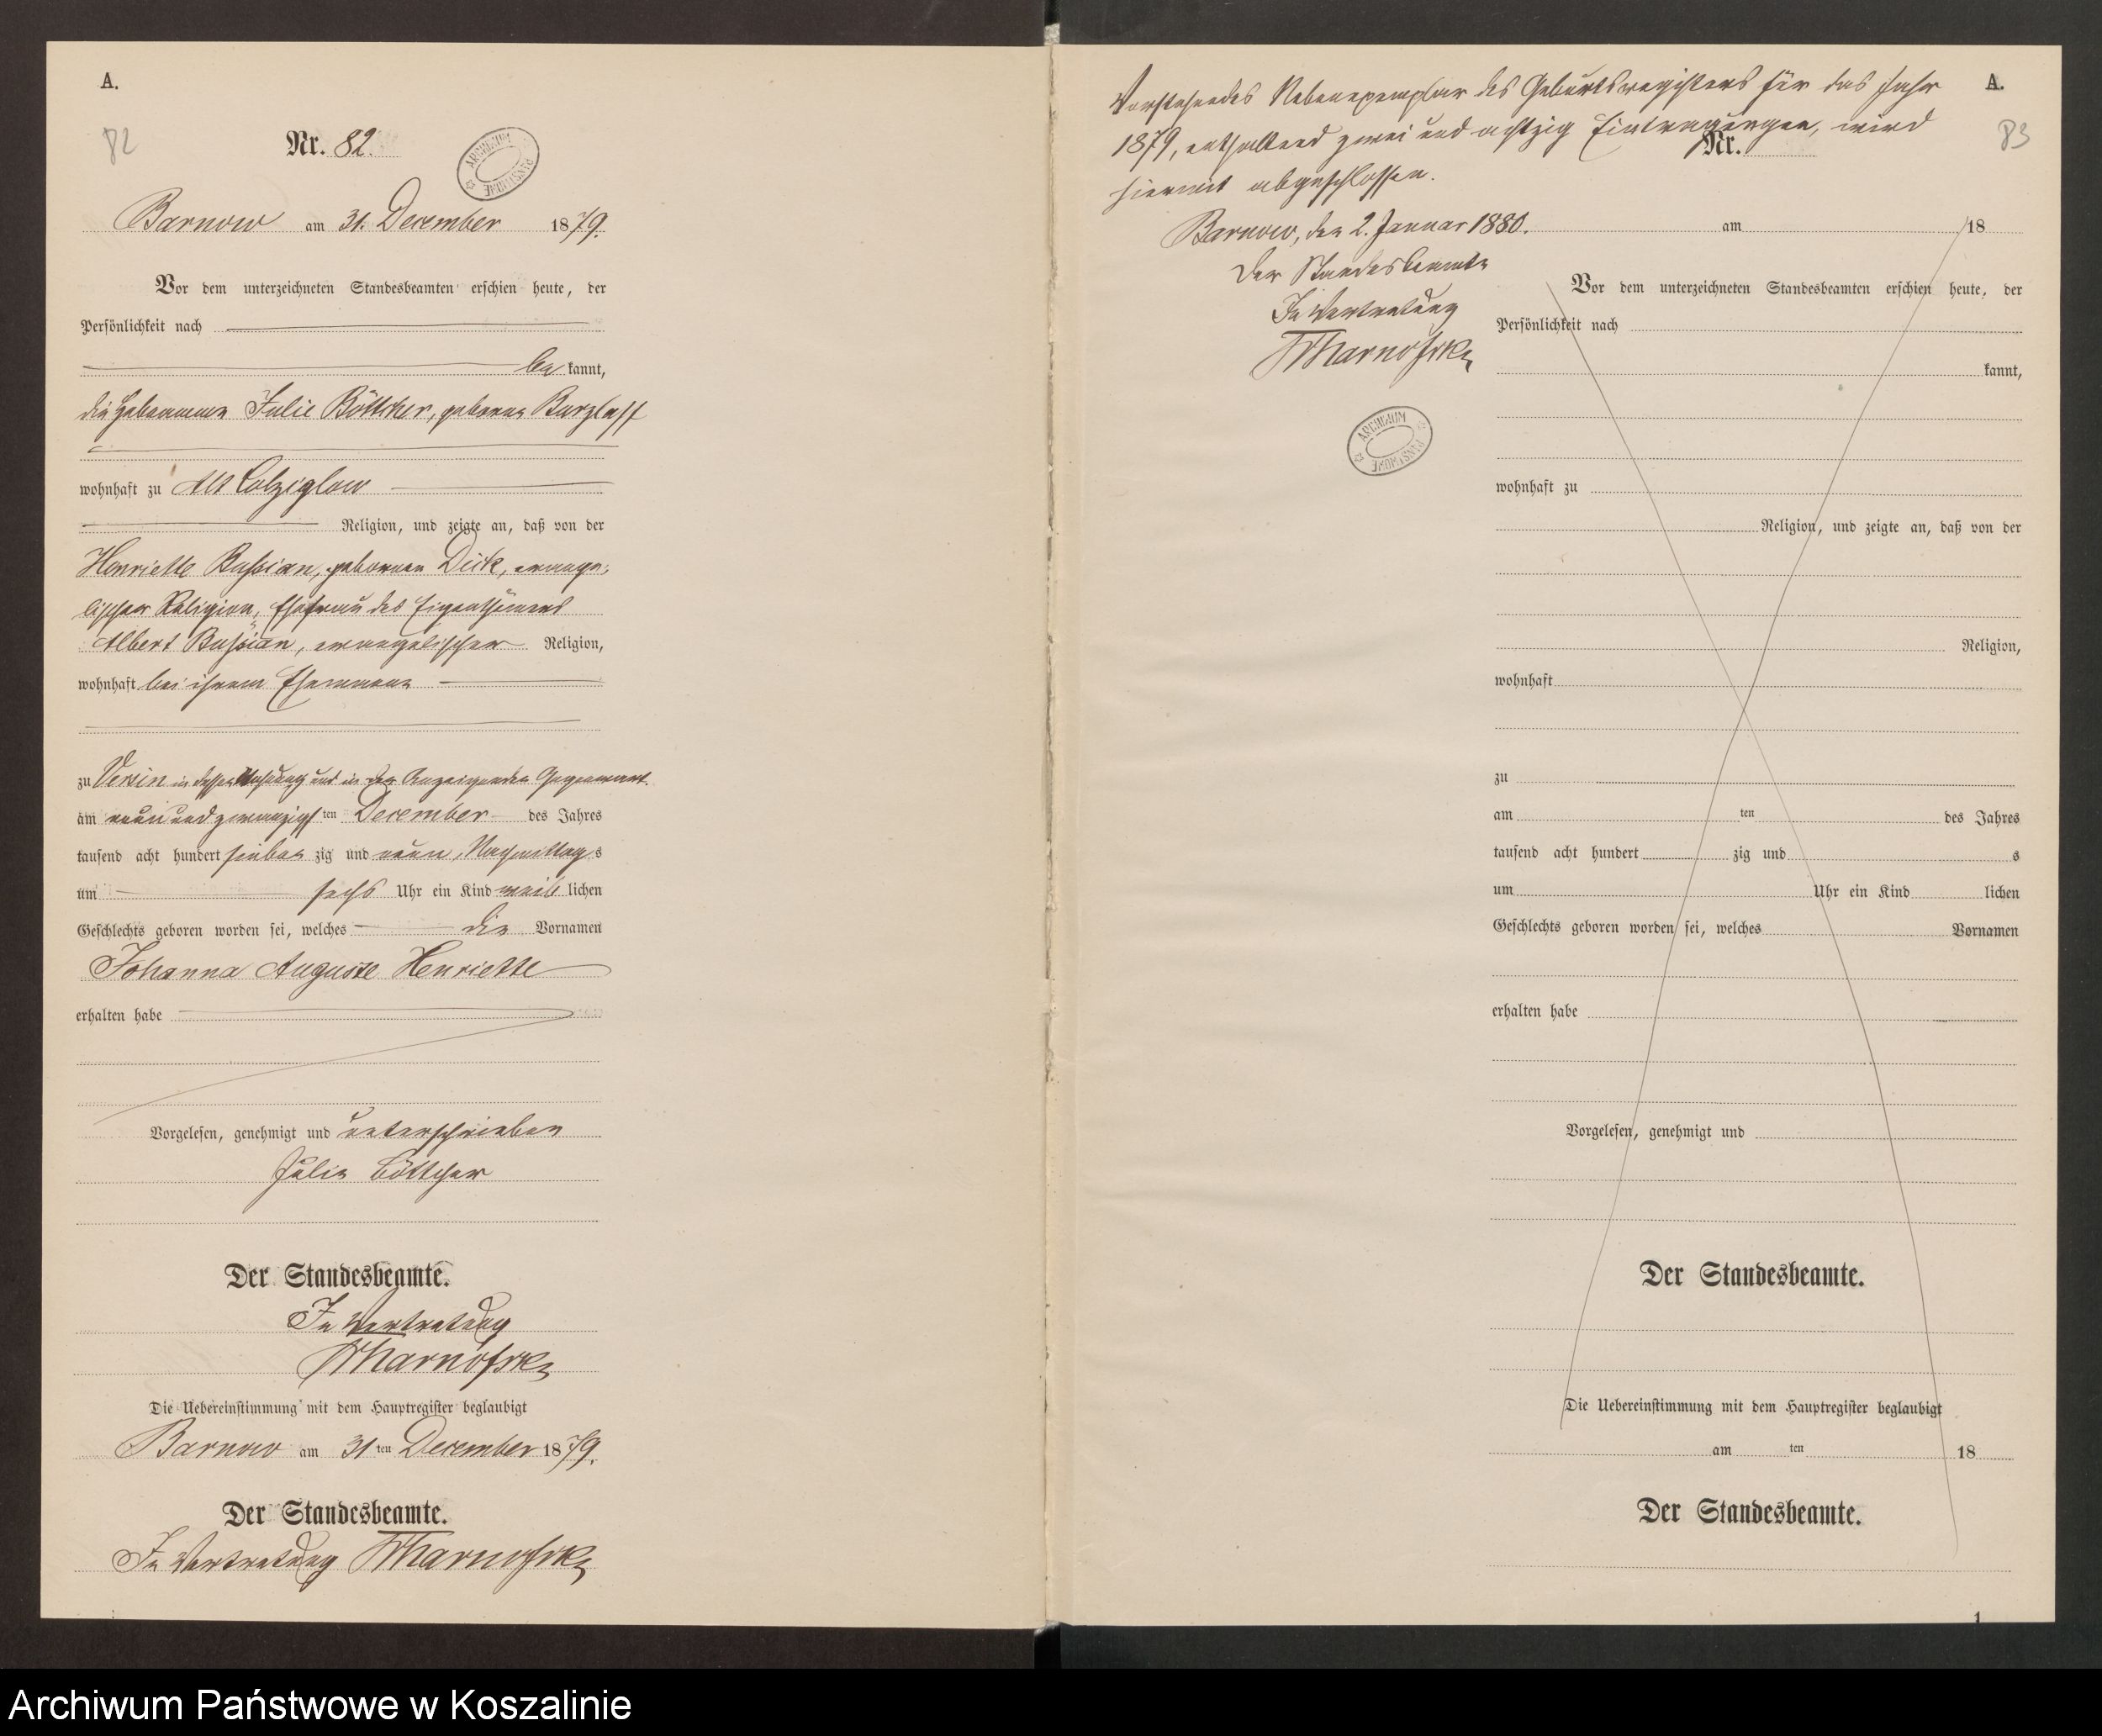 A.
82
Nr. 82.
ARCHIWUM PAŃSTWOWE
Barnow am 31. December 1879.
Vor dem unterzeichneten Standesbeamten erschien heute, der
Persönlichkeit nach
be kannt,
die Hebamme Julie Böttcher, geborene Barzlaff
wohnhaft zu Alt Colziglow
Religion, und zeigte an, daß von der
Henriette Bussian, geborenen Dück, evange-
lischer Religion, Ehefrau des Eigenthümers
Albert Bussian, evangelischer Religion,
wohnhaft bei ihrem Ehemanne
zu Versin in dessen Wohnung und in der Anzeigenden Gegenwart
am neun und zwanzigsten December des Jahres
tausend acht hundert sieben zig und neun, Nachmittags
um sechs Uhr ein Kind weib lichen
Geschlechts geboren worden sei, welches die Vornamen
Johanna Auguste Henriette
erhalten habe
Vorgelesen, genehmigt und unterschrieben
Julie Böttcher
Der Standesbeamte.
In Vertretung
Die Uebereinstimmung mit dem Hauptregister beglaubigt
Barnow am 31 ten December 1879.
Der Standesbeamte.
In Vertretung
Vorstehendes Nebenexemplar des Geburtsregisters für das Jahr
1879, enthaltend zwei und achtzig Eintragungen, wird
hiermit abgeschlossen.
Barnow, den 2. Januar 1880.
Der Standesbeamte
In Vertretung
ARCHIWUM PAŃSTWOWE
A.
83
Nr.
am 18
Vor dem unterzeichneten Standesbeamten erschien heute, der
Persönlichkeit nach
kannt,
wohnhaft zu
Religion, und zeigte an, daß von der
Religion,
wohnhaft
zu
am ten des Jahres
tausend acht hundert zig und s
um Uhr ein Kind lichen
Geschlechts geboren worden sei, welches Vornamen
erhalten habe
Vorgelesen, genehmigt und
Der Standesbeamte.
Die Uebereinstimmung mit dem Hauptregister beglaubigt
am ten 18
Der Standesbeamte.
1
Archiwum Państwowe w Koszalinie